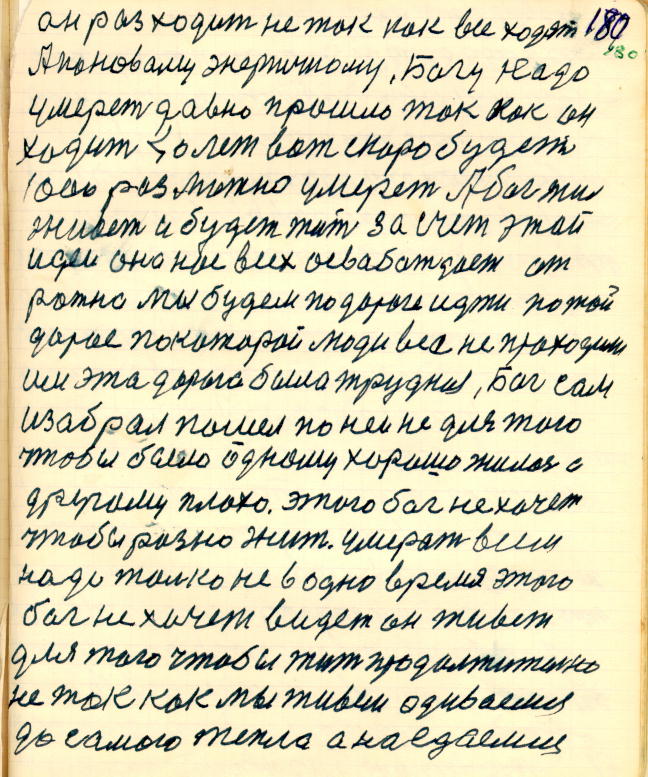 он расходит не так как все ходят 180
180
А поновому энергичному, Богу надо
умерет давно прошло так как он
ходит 50 лет вот скоро будет
1000 раз можно умерет А бог жил
живет и будет жит за счет этай
идеи она нас всех освабаждает от
мы будем подороге идти потой
дароге покоторой люди все не проходили
им эта дорога была трудная, Бог сам
изабрал пошел по ней не для того
чтобы было одному хорошо жилося а
другому плохо. этого бог не хочет
чтобы разно жит. умерат всем
надо толко не водно время этого
бог не хочет видет он живет
для того чтобы жит продолжително
не так как мы живем одиваемся
до самого тепла а наедаемся